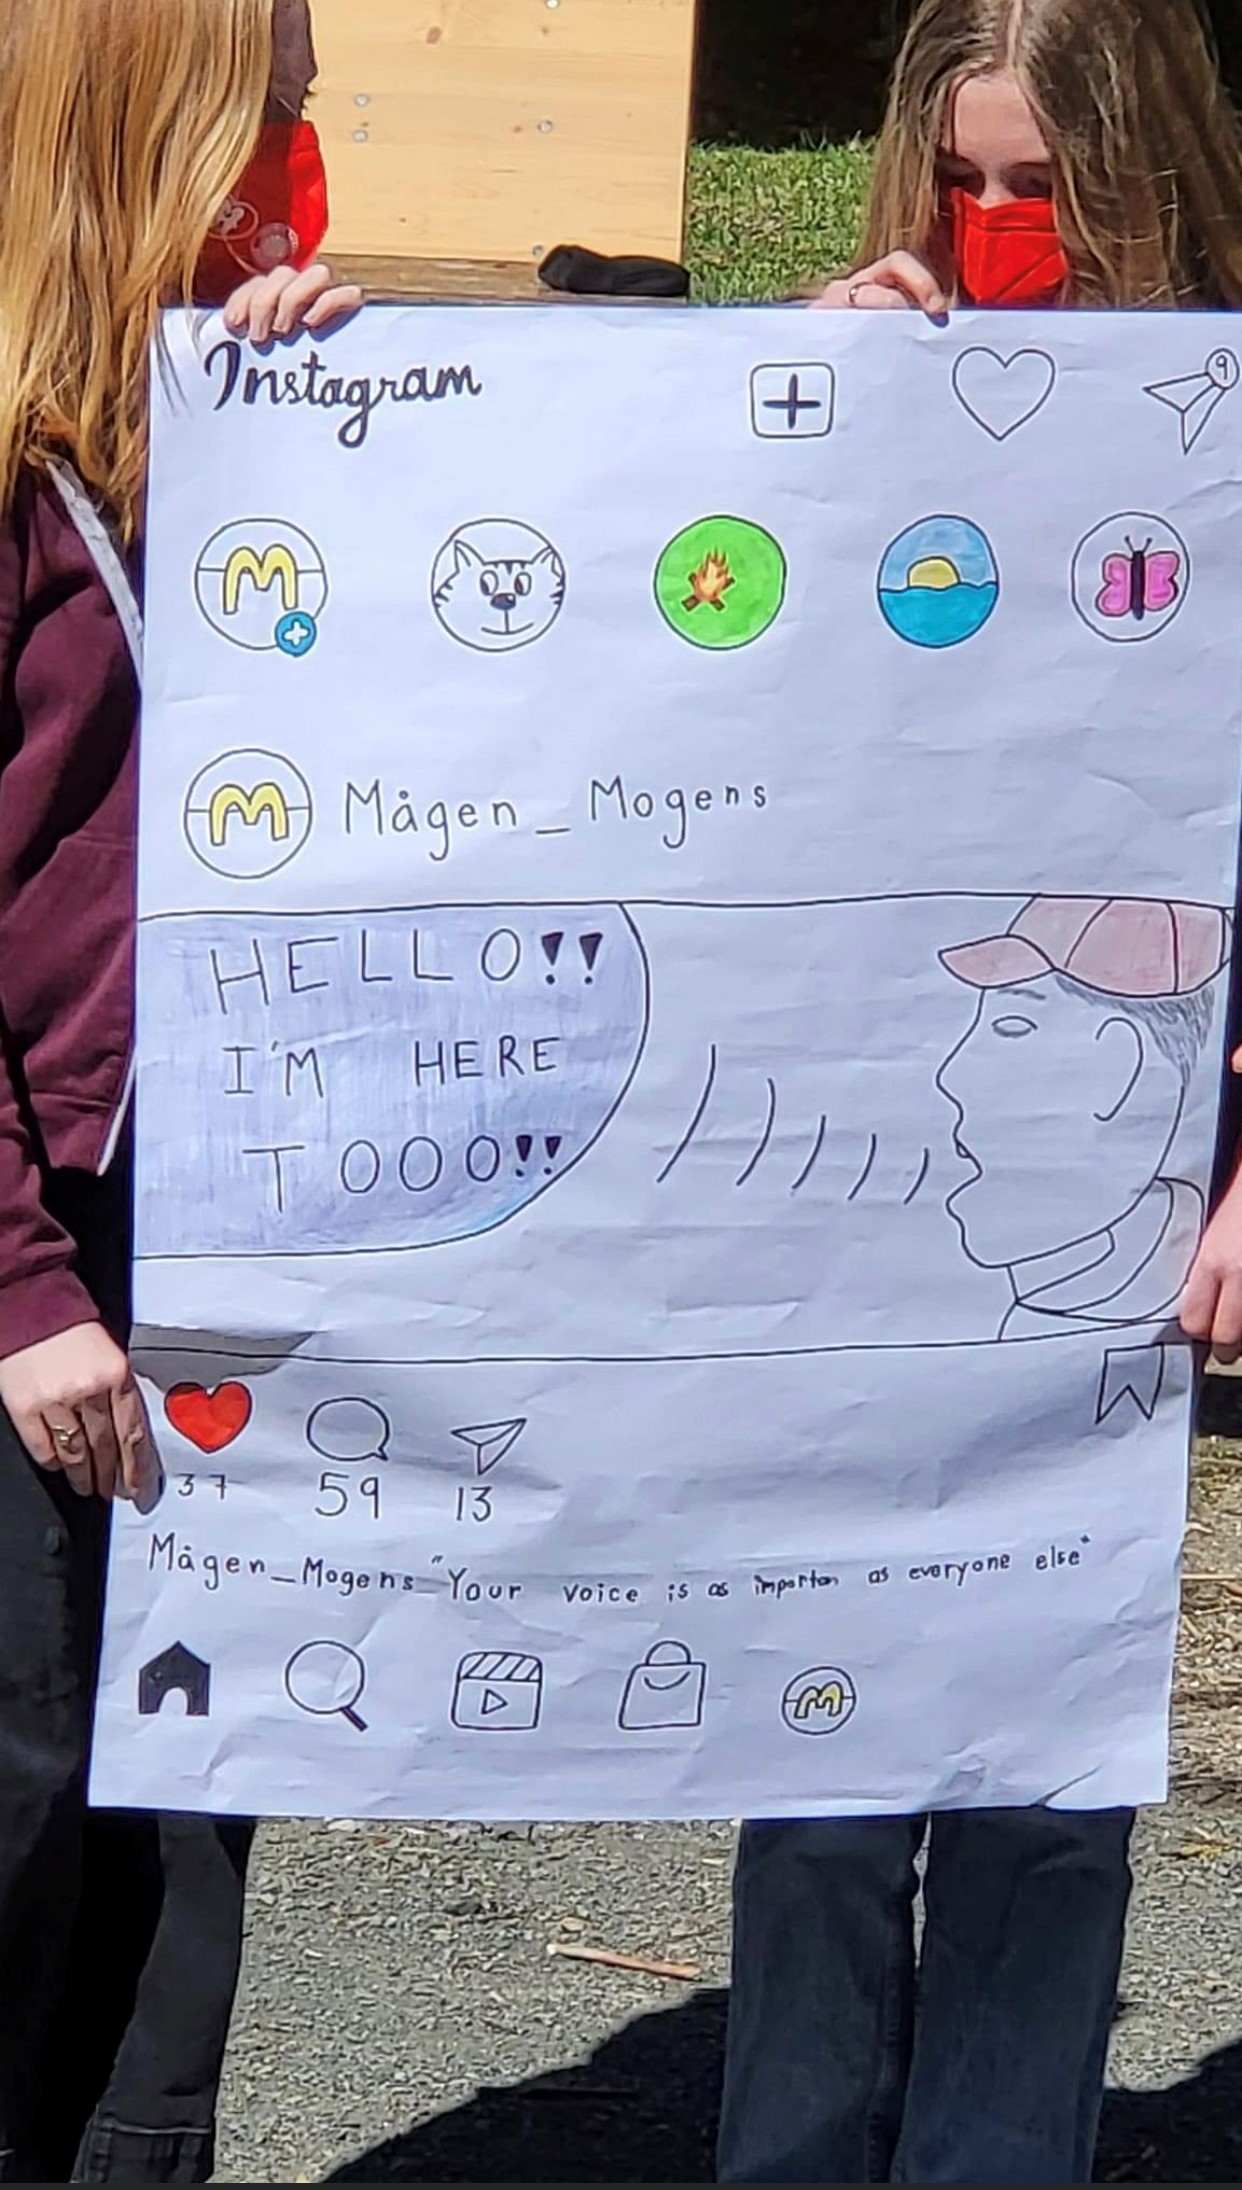 Instagram
9
M
M Mågen_Mogens
HELLO!!
I'M HERE
TOOO!!
37 59 13
Mågen_Mogens_"Your voice is as importan as everyone else"
M